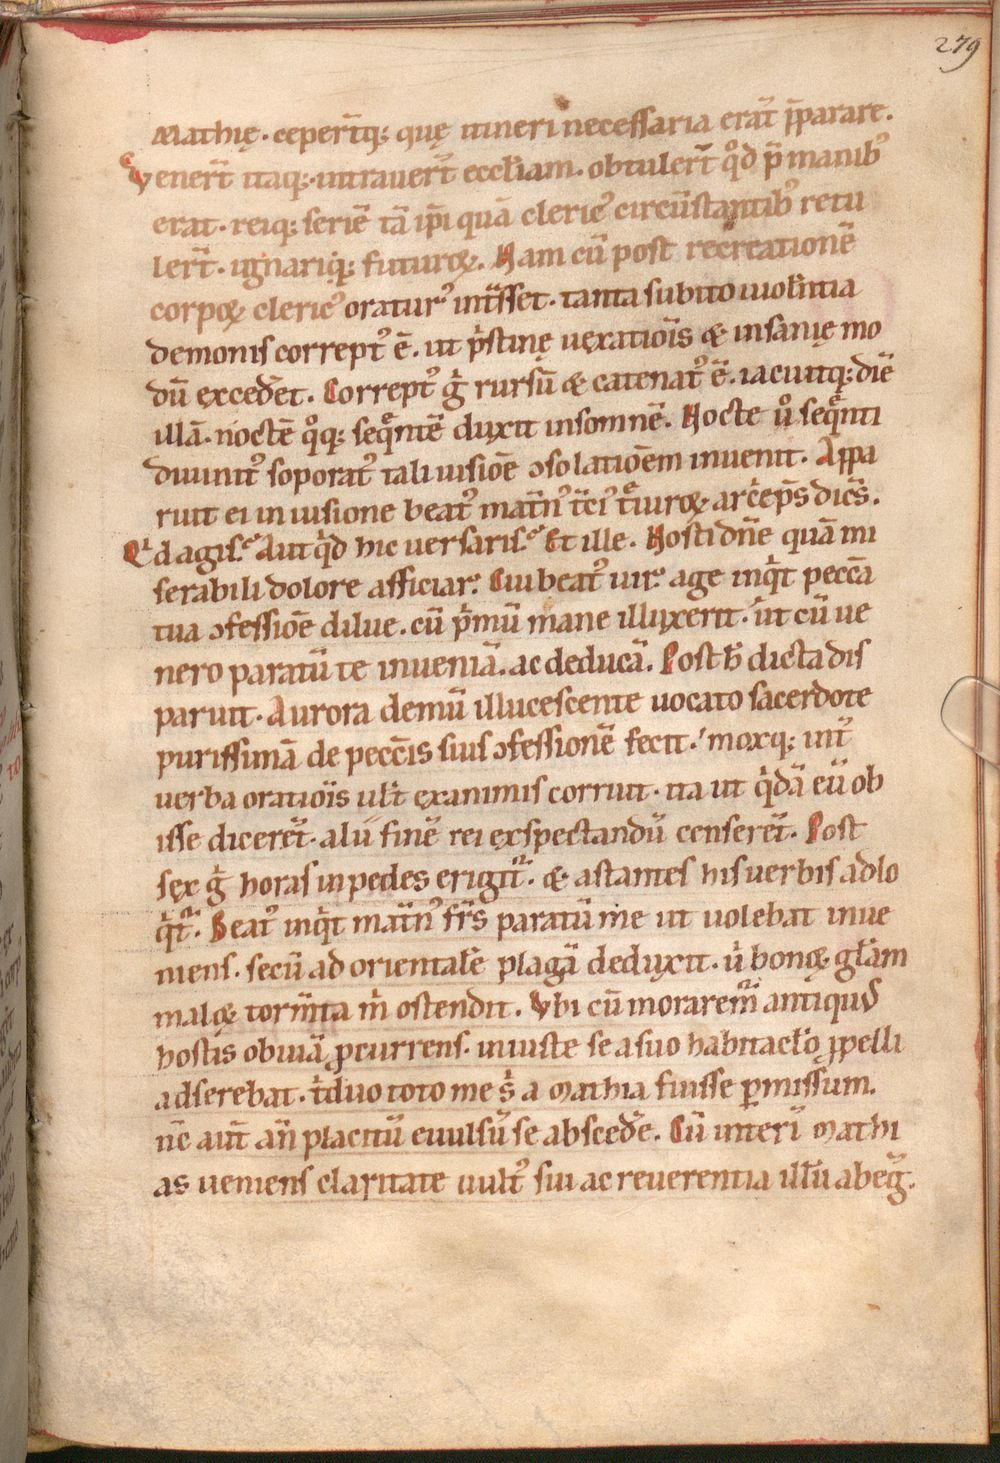 279
Mathię. ceper̄tq; quę itineri necessaria erāt p̄parare.
Vener̄t itaq;. intrauer̄t eccl̄iam. obtuler̄t qͦd p̄ manibꝰ
erat. reiq; seriē tā ip̄i quā clericꝰ circūstantibꝰ retu
ler̄t. ignariq; futuroꝝ. Nam cū post recreationē
corpoꝝ clericꝰ oraturꝰ int̄sset. tanta subito uiol̄ntia
demonis correptꝰ ē. ut p̄stinę uęxatiōis & insanię mo
dū excedēt. Correptꝰ g̊ rursū & catenatꝰ ē. iacuitq; diē
illā. noctē qͦq; seqͤntē duxit insomnē. Nocte uͦ seqͤnti
diuinitꝰ soporatꝰ tali uisiōe ɔsolatiōem inuenit. Appa
ruit ei in uisione beatꝰ mat̄nꝰ t̄ciꝰ tͤuiroꝝ arc̄ep̄s dic̄s.
Qͥd agis? Aut qͥd hic uersaris? Et ille. Nosti dn̄e quā mi
serabili dolore afficiar. Cui beatꝰ uir. age inqͥt pecc̄a
tua ɔfessiōe dilue. cū pͥmū mane illuxerit. ut cū ue
nero paratū te inueniā. ac deducā. Post h̄ dicta dis
paruit. Aurora demū illucescente uocato sacerdote
purissimā de pecc̄is suis ɔfessionē fecit. moxq; int̄
uerba oratiōis ult̄ exanimis corruit. ita ut qͥdā eū ob
isse dicerēt. alii finē rei exspectandū censerēt. Post
sex g̊ horas in pedes erigit᷑. & astantes his uerbis adlo
qͥt᷑. Beatꝰ inqͥt mat̄nꝰ fr̄s paratū me ut uolebat inue
niens. secū ad orientalē plagā deduxit. uͥ bonoꝝ gl̄am
maloꝝ torm̄ta mͥ ostendit. Vbi cū moraremᷓ antiquꝰ
hostis obuiā ꝓcurrens. iniuste se a suo habitac̄lo ꝓpelli
adserebat. tͥduo toto me sͥ a Mathia fuisse ꝑmissum.
nc̄ aūt an̄ placitū euulsū se abscedē. Cū interī Mathi
as ueniens claritate uultꝰ sui ac reuerentia illū abeḡ.